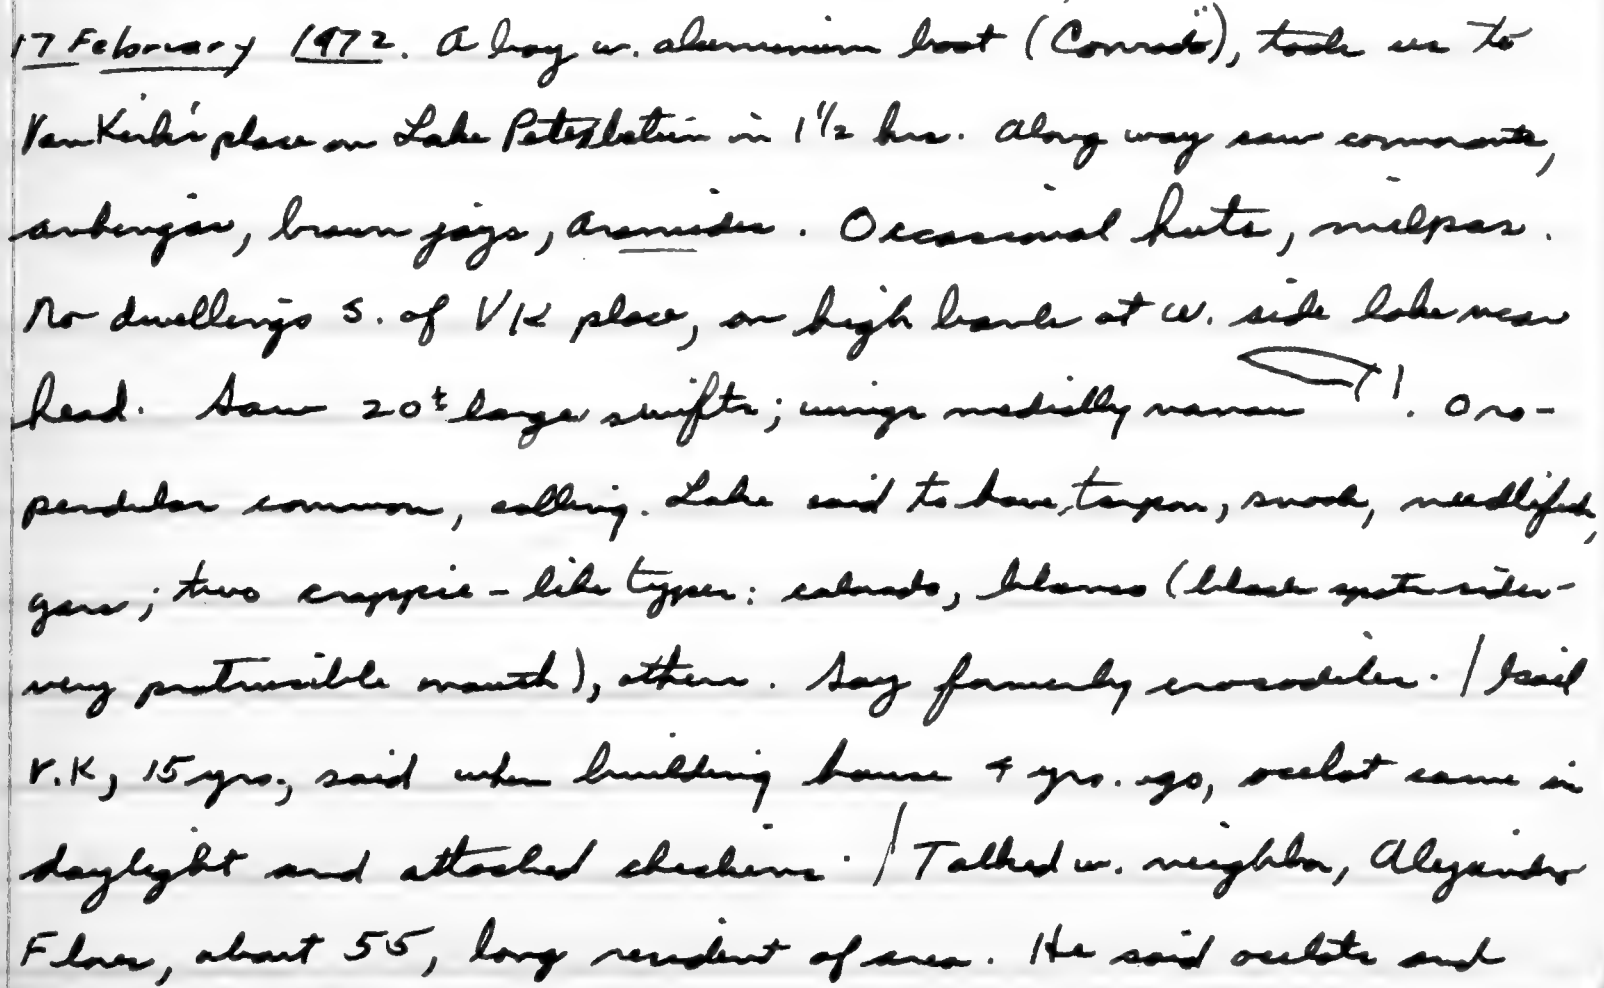 17 February 1972. A boy w. aluminium boat (Conrado), took us to
Van Kirk's place on Lake Petexbatun in 1 1/2 hrs. Along way saw cormorants,
anhingas, brown jays, Aramides. Occasional huts, milpas.
No dwellings S. of VK place, on high bank at w. side lake near
head. Saw 20± large swifts; wings medially narrow. Oro-
pendulas common, calling. Lake said to have tarpon, snook, needlefish,
gars; two crappie-like types: colorado, blanco (black spots sides-
very protrusible mouth), others. Say formerly crocodiles. /
V.K, 15 yrs., said when building house 4 yrs. ago, ocelot came in
daylight and attacked chickens. / Talked w. neighbor, Alejandro
Flores, about 55, long resident of area. He said ocelots and